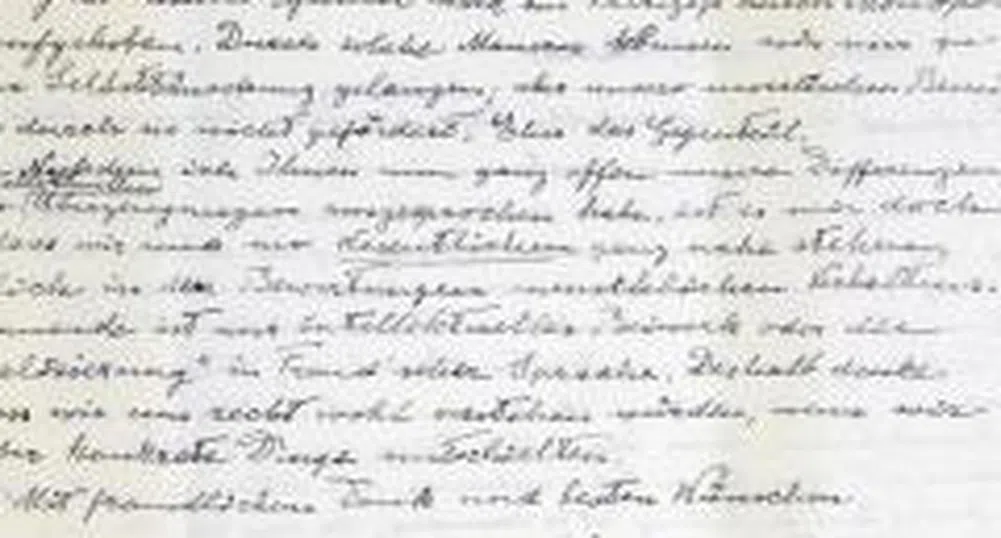 aufgehoben. Durch solche Mauern können wir nur zu
Selbsttäuschung gelangen; aber unsere moralischen
durch sie nicht gefördert. Eher das Gegenteil.
Nachdem ich Ihnen nun ganz offen unsere Differenzen
Überzeugungen ausgesprochen habe, ist es mir doch
dass wir uns im Wesentlichen ganz nahe stehen,
in den Bewertungen menschlichen Verhaltens.
ist nur intellektuelles Beiwerk oder die
alisierung" in Freud'scher Sprache. Deshalb denke
wir uns recht wohl verstehen würden, wenn wir
über konkrete Dinge unterhielten.
Mit freundlichem Dank und besten Wünschen